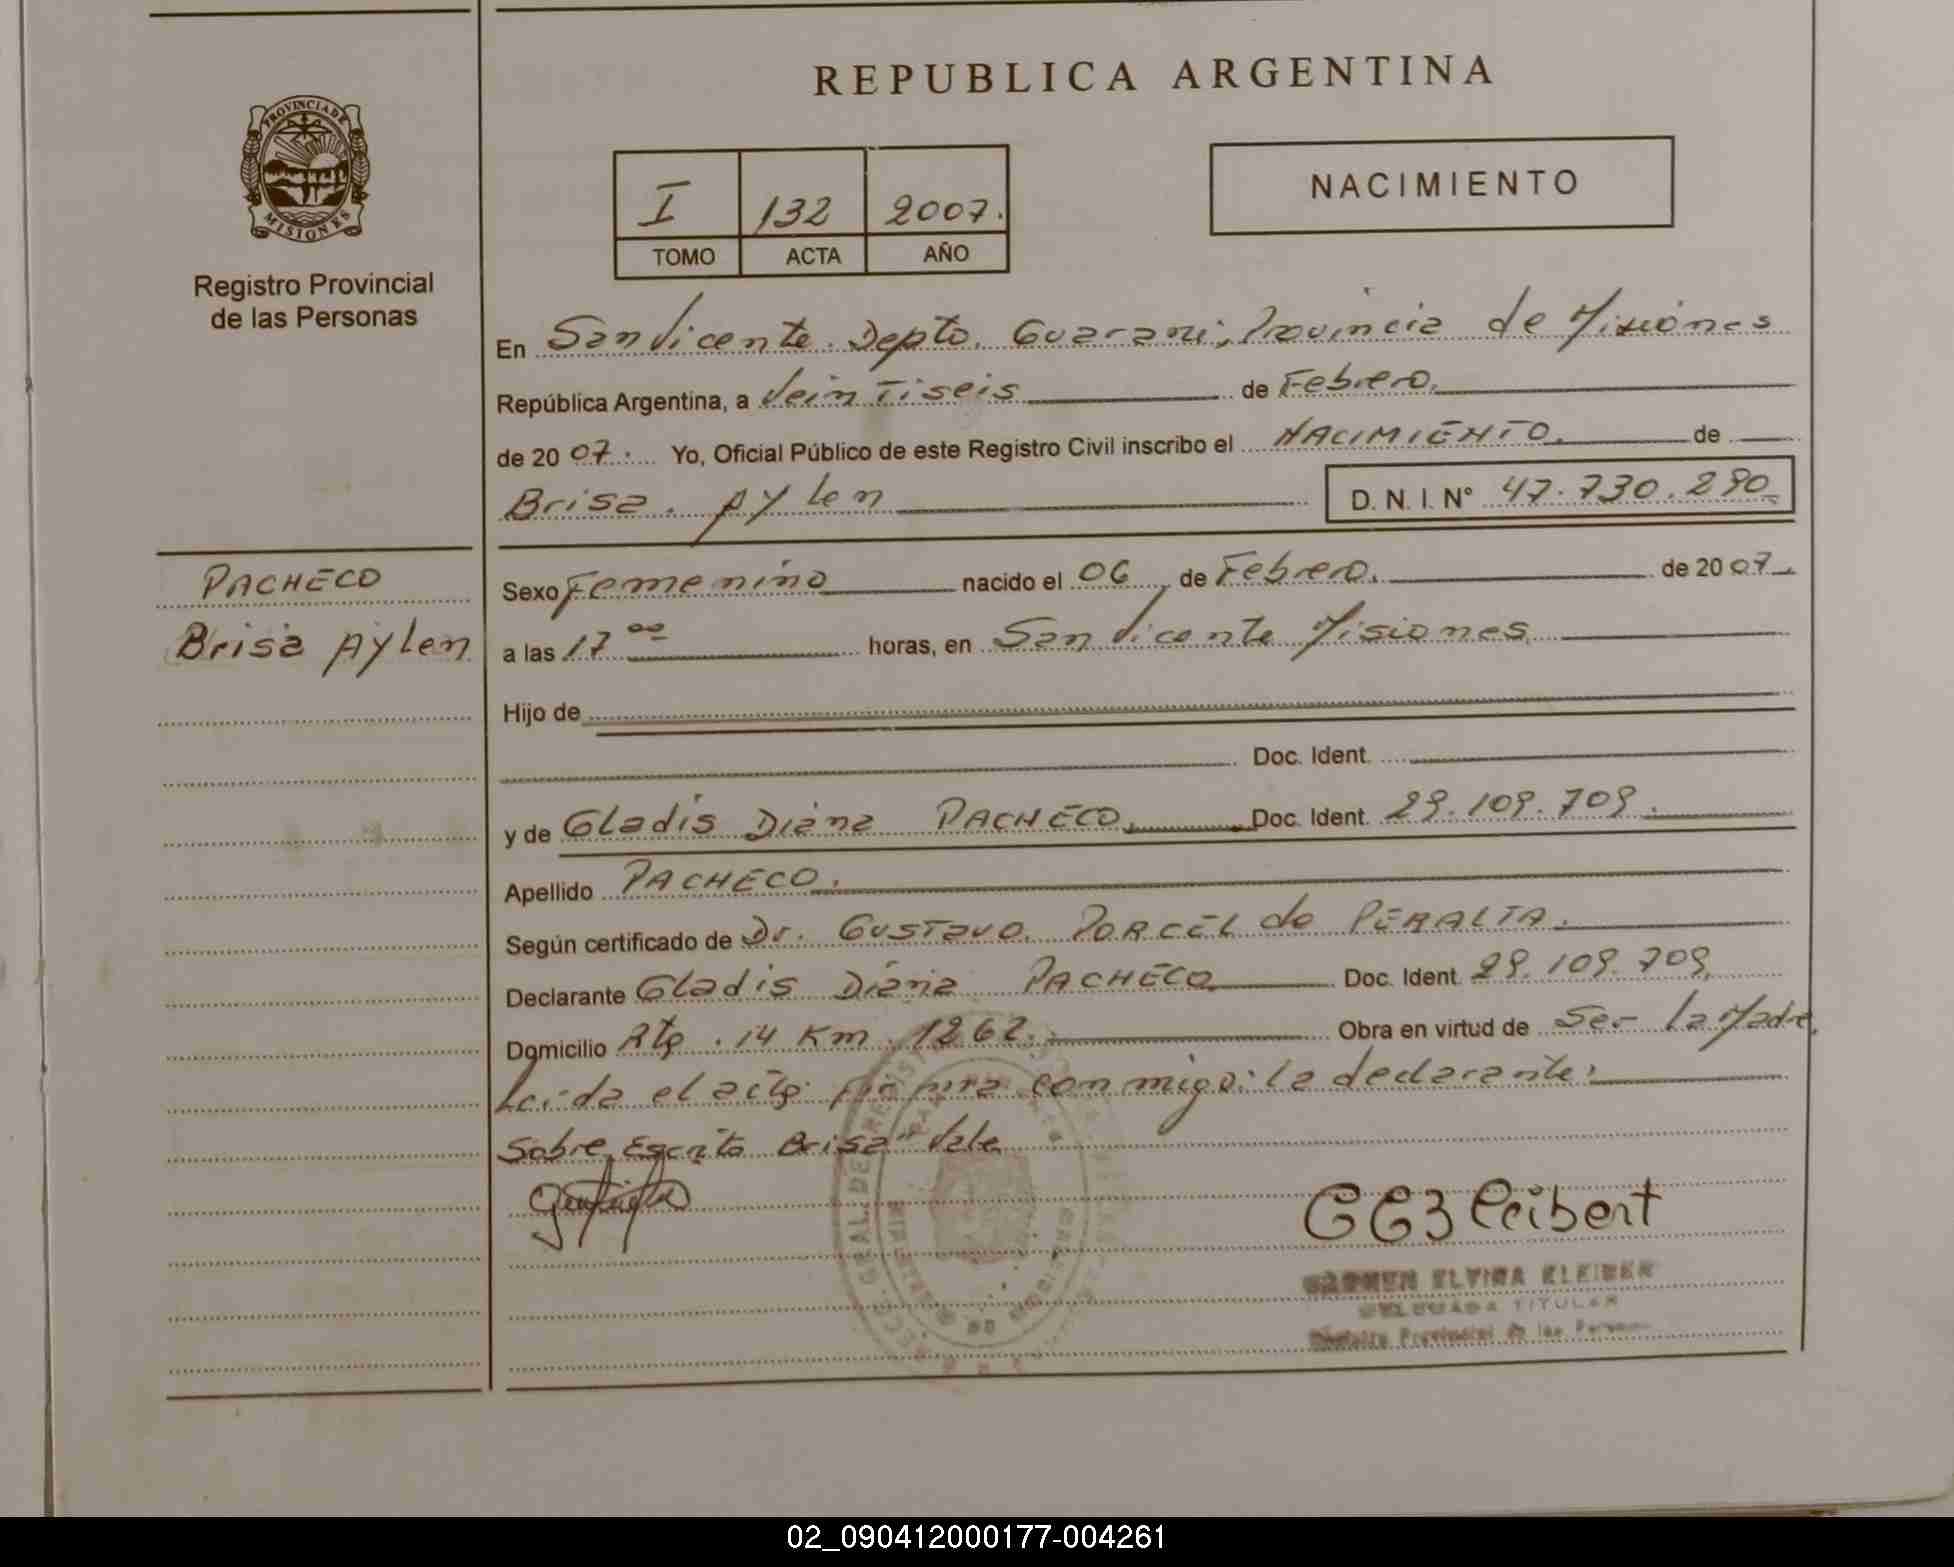 REPUBLICA ARGENTINA
PROVINCIA DE
MISIONES
Registro Provincial
de las Personas
I 132 2007.
TOMO ACTA AÑO
NACIMIENTO
En San Vicente. Depto. Guarani, Provincia de Misiones
República Argentina, a Veintiseis de Febrero.
de 2007. Yo, Oficial Público de este Registro Civil inscribo el NACIMIENTO. de
Brisa. Aylen D. N. I. N° 47.730.290
PACHECO
Brisa Aylen
Sexo Femenino nacido el 06 de Febrero. de 2007.
a las 17 00 horas, en San Vicente Misiones.
Hijo de
Doc. Ident.
y de Gladis Diana PACHECO. Doc. Ident. 29.109.709.
Apellido PACHECO.
Según certificado de Dr. GUSTAVO. PORCEL de PERALTA.
Declarante Gladis Diana PACHECO Doc. Ident. 29.109.709.
Domicilio Rta. 14 Km. 1262. Obra en virtud de Ser la Madre.
Leida el acta firma conmigo: la declarante:
Sobre Escrito Brisa" Vale
CARMEN ELVIRA
DELEGADA TITULAR
Registro Provincial de las Personas
02_090412000177-004261